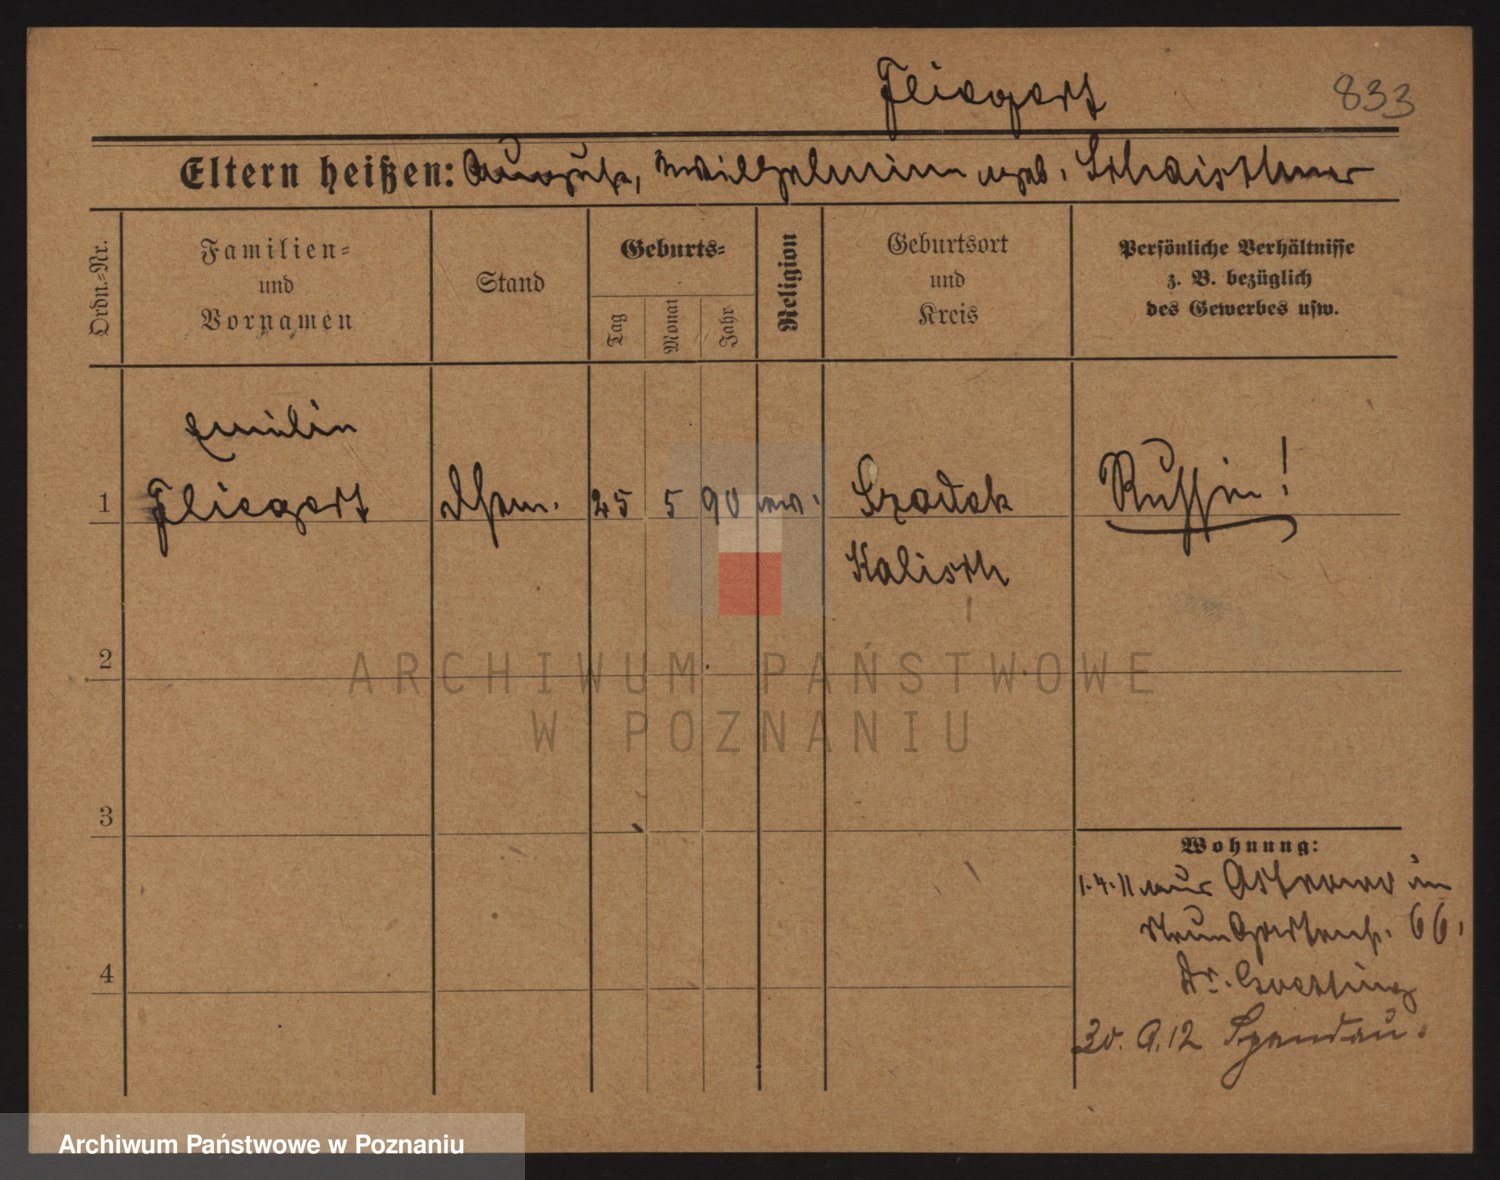 Fliegert
833
Eltern heißen: August, Wilhelmine geb.
Ordn.-Nr.
Familien-
und
Vornamen
Stand
Geburts-
Tag
Monat
Jahr
Religion
Geburtsort
und
Kreis
Persönliche Verhältnisse
z. B. bezüglich
des Gewerbes usw.
Emilie
1 Fliegert 25 5 90 ev. Szadek Russin!
Kalisch
2
3
4
Wohnung:
1.4.11 aus Ostrowo in
66.
Dr.
30. 9. 12
ARCHIWUM PAŃSTWOWE
W POZNANIU
Archiwum Państwowe w Poznaniu